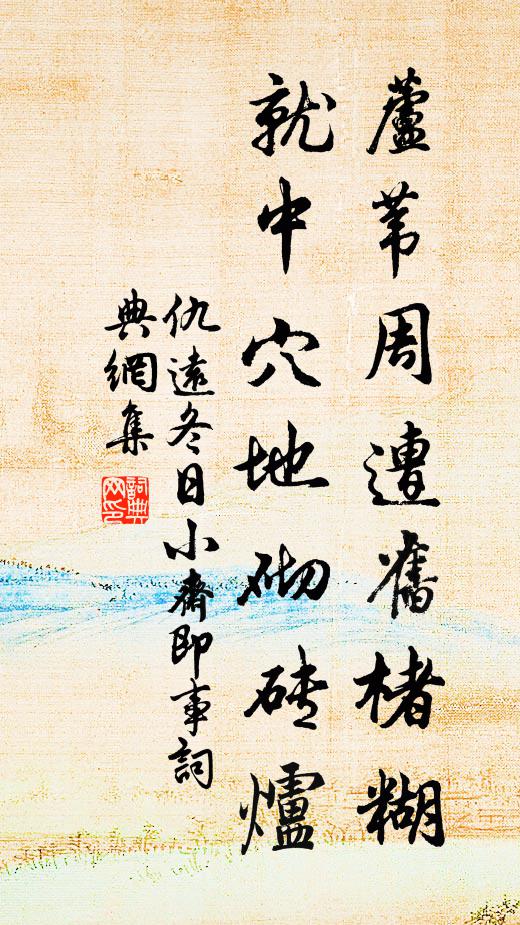 蘆苇周遭舊楮糊
就中穴地砌砖爐
仇遠冬日小齋即事詞
典網集
詞典网印